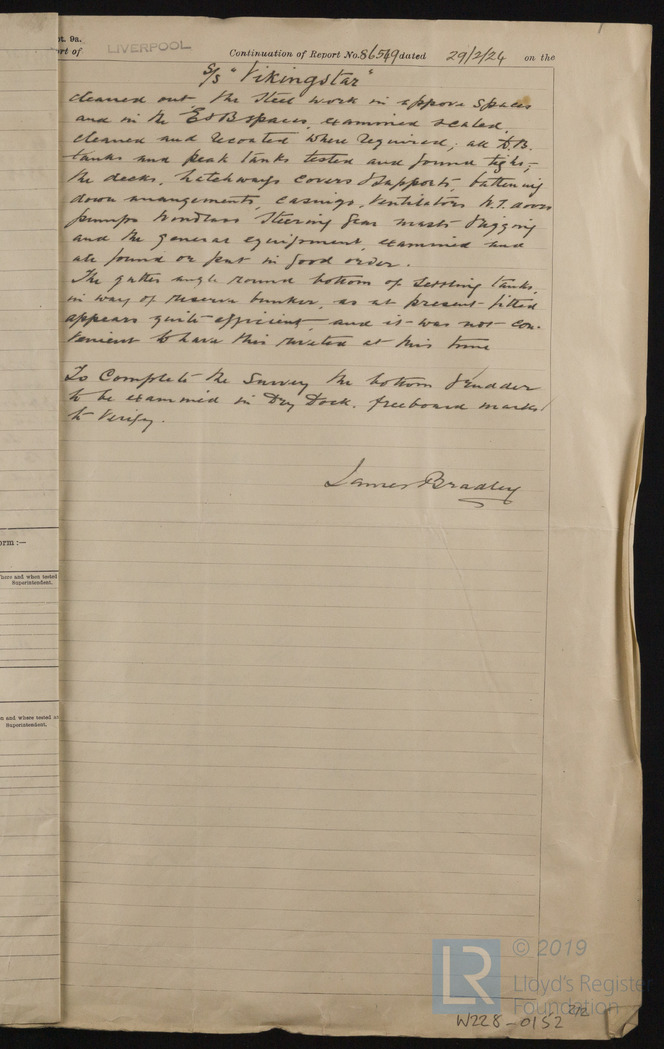 pt. 9a.
ort of LIVERPOOL Continuation of Report No. 86549 dated 29/2/24 on the
S/S "Vikingstar"
cleaned out, the steel work in approve spaces
and in the E & B spaces, examined scaled,
cleaned and recoated where required; all D.B.
tanks and peak tanks tested and found tight;
the decks, hatchways covers & supports, battening
down arrangements, casings, Ventilators W.T. doors
pumps windlass steering gear masts & rigging
and the general equipment, examined and
all found or put in good order.
The gutter angle round bottom of settling tanks,
in way of reserve bunker, as at present fitted
appears quite efficient, and it was not con-
venient to have this riveted at this time
To Complete the Survey the bottom & rudder
to be examined in Dry Dock. freeboard marks
to verify.
James Bradley
orm :—
here and when tested
Superintendent.
n and where tested
Superintendent.
© 2019
LR
Lloyd's Register
Foundation
W228-0152 2/2